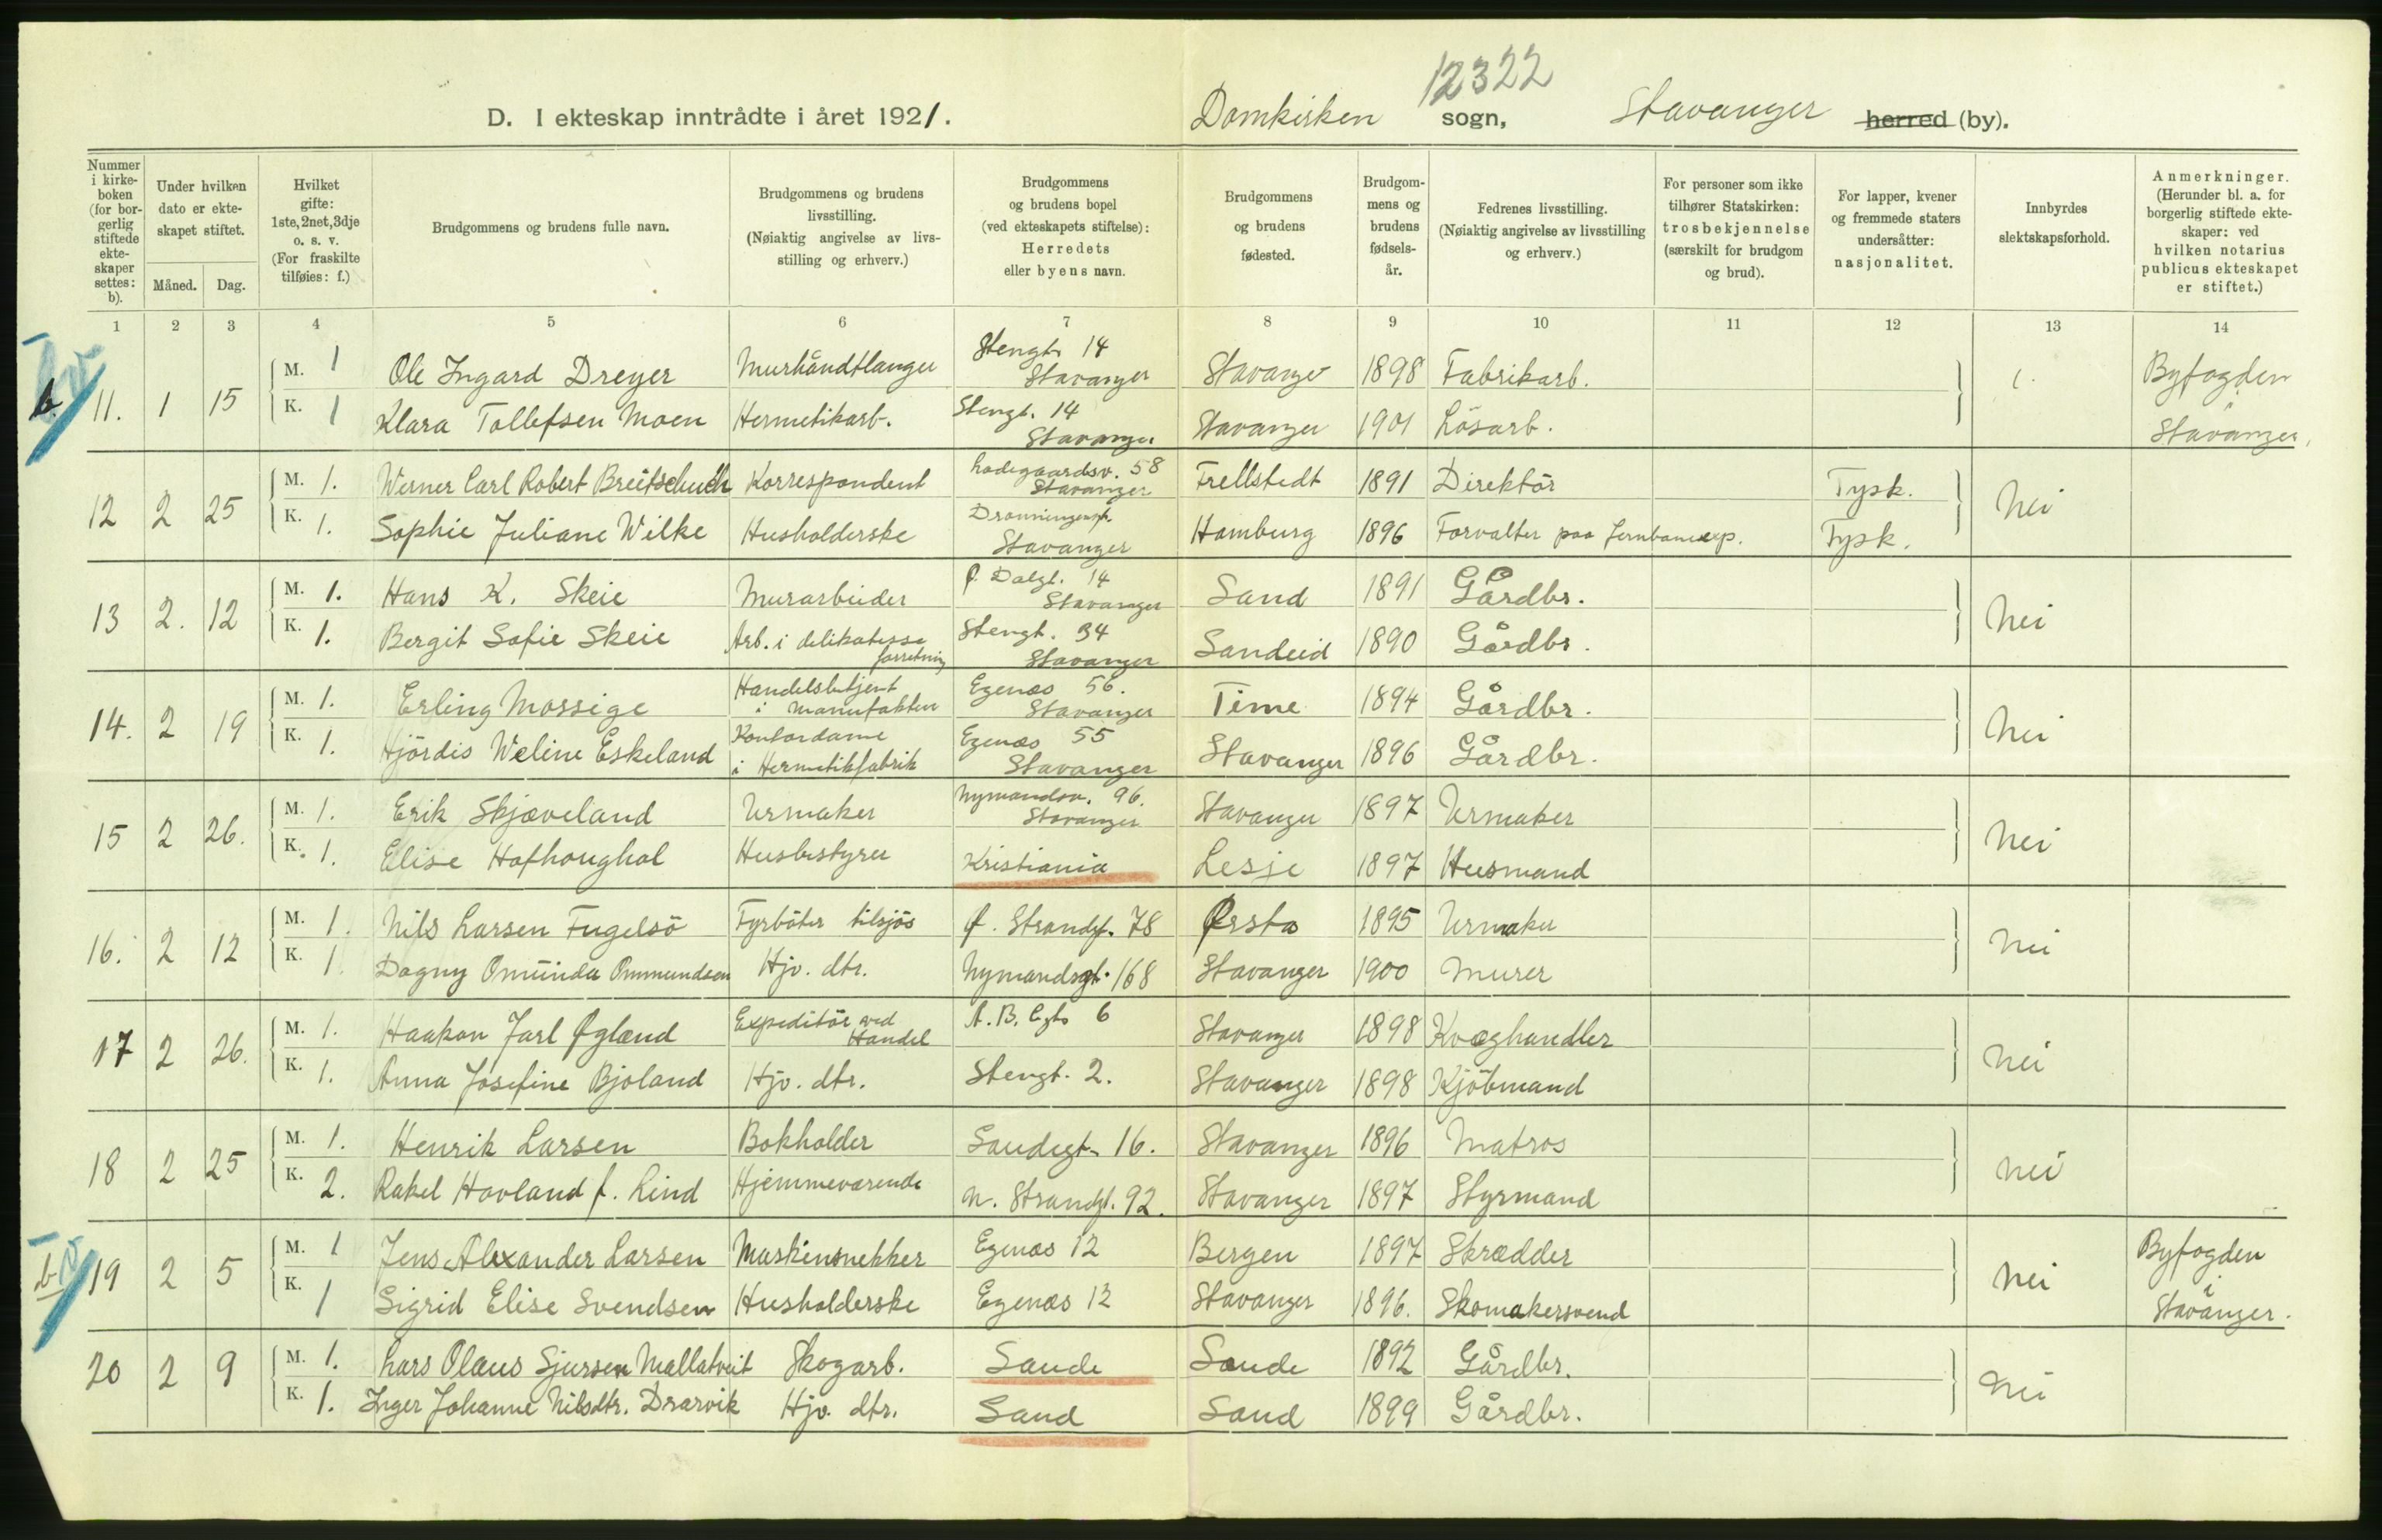 12322
D. I ekteskap inntrådte i året 1921. Domkirken sogn, Stavanger herred (by).
Nummer i kirke-boken (for bor-gerlig stiftede ekte-skaper settes: b).
Under hvilken dato er ekte-skapet stiftet.
Måned. Dag.
Hvilket gifte: 1ste, 2net, 3dje o. s. v. (For fraskilte tilføies: f.)
Brudgommens og brudens fulle navn.
Brudgommens og brudens livsstilling. (Nøiaktig angivelse av livs-stilling og erhverv.)
Brudgommens og brudens bopel (ved ekteskapets stiftelse): Herredets eller byens navn.
Brudgommens og brudens fødested.
Brudgom-mens og brudens fødsels-år.
Fedrenes livsstilling. (Nøiaktig angivelse av livsstilling og erhverv.)
For personer som ikke tilhører Statskirken: trosbekjennelse (særskilt for brudgom og brud).
For lapper, kvener og fremmede staters undersåtter: nasjonalitet.
Innbyrdes slektskapsforhold.
Anmerkninger. (Herunder bl. a. for borgerlig stiftede ekte-skaper: ved hvilken notarius publicus ekteskapet er stiftet.)
1 2 3 4 5 6 7 8 9 10 11 12 13 14
b. 11. 1 15 M. 1 Ole Ingard Dreyer Murhåndtlanger Stengt. 14 Stavanger Stavanger 1898 Fabrikarb. Byfogden
K. 1 Klara Tollefsen Moen Hermetikarb. Stengt. 14 Stavanger Stavanger 1901 Lösarb. i Stavanger,
12 2 25 M. 1. Werner Carl Robert Breitschuch Korrespondent Ladegaardsv. 58 Stavanger Frellstedt 1891 Direktör Tysk. Nei
K. 1. Sophie Juliane Wilke Husholderske Stavanger Hamburg 1896 Forvalter paa Jernbaneexp. Tysk.
13 2. 12 M. 1. Hans K. Skeie Murarbeider Ø. Dalgt. 14 Stavanger Sand 1891 Gårdbr. Nei
K. 1. Bergit Sofie Skeie Arb. i delikatesse forretning Stengt. 34 Stavanger Sandeid 1890 Gårdbr.
14. 2 19 M. 1. Erling Mossige Handelsbetjent i Manufaktur Egenæs 56. Stavanger Time 1894 Gårdbr. Nei
K. 1. Hjördis Weline Eskeland Kontordame i Hermetikfabrik Egenæs 55 Stavanger Stavanger 1896 Gårdbr.
15 2 26. M. 1. Erik Skjæveland Urmaker Nymandsv. 96. Stavanger Stavanger 1897 Urmaker Nei
K. 1. Elise Hofhoughol Husbestyrer Kristiania Lesje 1897 Husmand
16. 2 12 M. 1. Nils Larsen Fugelsö Fyrböter tilsjös Ø. Strandgt. 78 Ørsta 1895 Urmaker Nei
K. 1. Dagny Omünda Ommundsen Hjv. dtr. Nymandsgt. 168 Stavanger 1900 Murer
17 2 26. M. 1. Haakon Jarl Øglænd Expeditör ved Handel A. B. Cgt. 6 Stavanger 1898 Kvæghandler Nei
K. 1. Anna Josefine Bjoland Hjv. dtr. Stengt. 2. Stavanger 1898 Kjöbmand
18 2 25 M. 1. Henrik Larsen Bokholder Sandegt. 16. Stavanger 1896 Matros Nei
K. 2. Rakel Hovland f. Lind Hjemmeværende N. Strandgt. 92. Stavanger 1897 Styrmand
b 19 2 5 M. 1 Jens Alexander Larsen Maskinsnekker Egenæs 12 Bergen 1897 Skrædder Nei Byfogden
K. 1 Sigrid Elise Svendsen Husholderske Egenæs 12 Stavanger 1896. Skomakersvend i Stavanger.
20 2 9 M. 1. Lars Olaus Sjursen Mallatveit Skogarb. Saude Saude 1892 Gårdbr. Nei
K. 1. Inger Johanne Nilsdtr. Drarvik Hjv. dtr. Sand Sand 1899 Gårdbr.